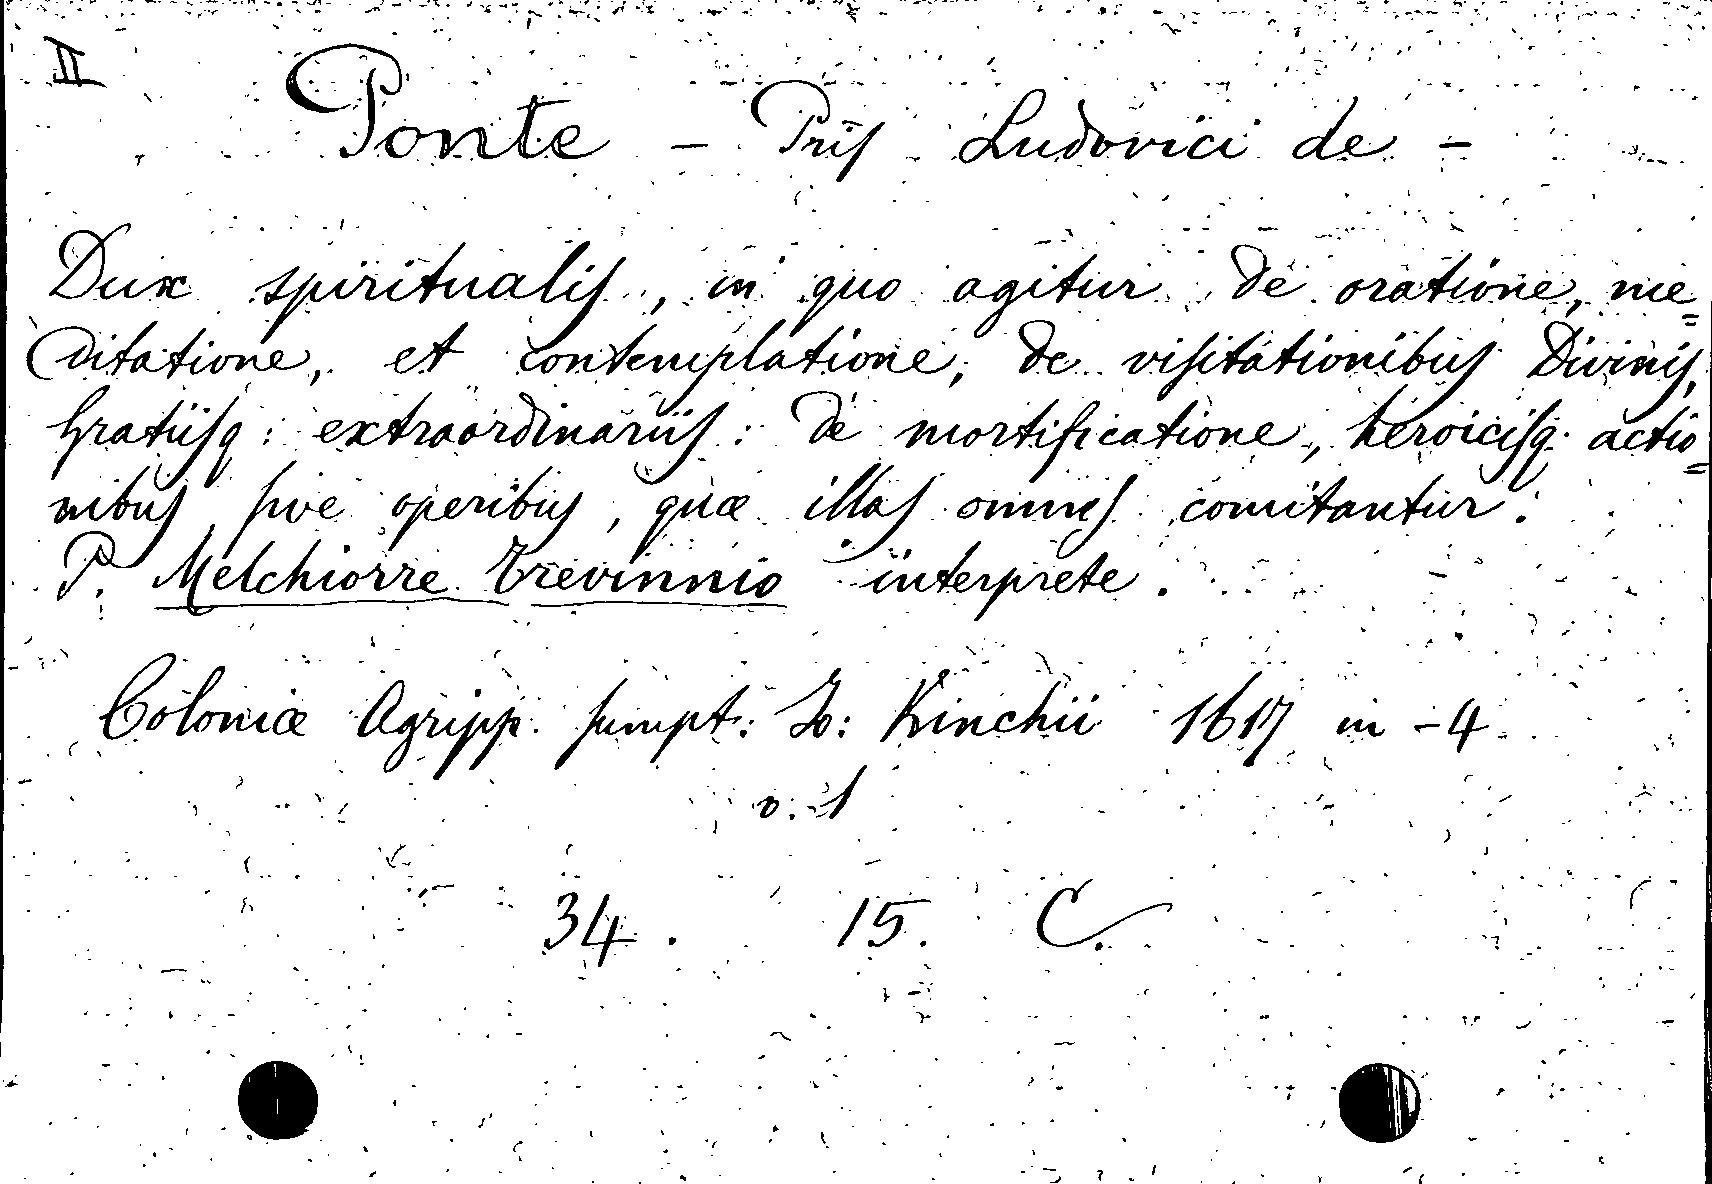 II
Ponte - Pris Ludovici de -
Dux spiritualis, in quo agitur de oratione, me=
ditatione, et contemplatione, de visitationibus Divinis,
Gratiisq: extraordinariis: de mortificatione, heroicisq. actio=
nibus sive operibus, quæ illas omnes comitantur.
P. Melchiorre Trevinnio interprete.
Coloniæ Agripp. sumpt: Io: Kinchii 1617 in-4
v. 1
34. 15. C.